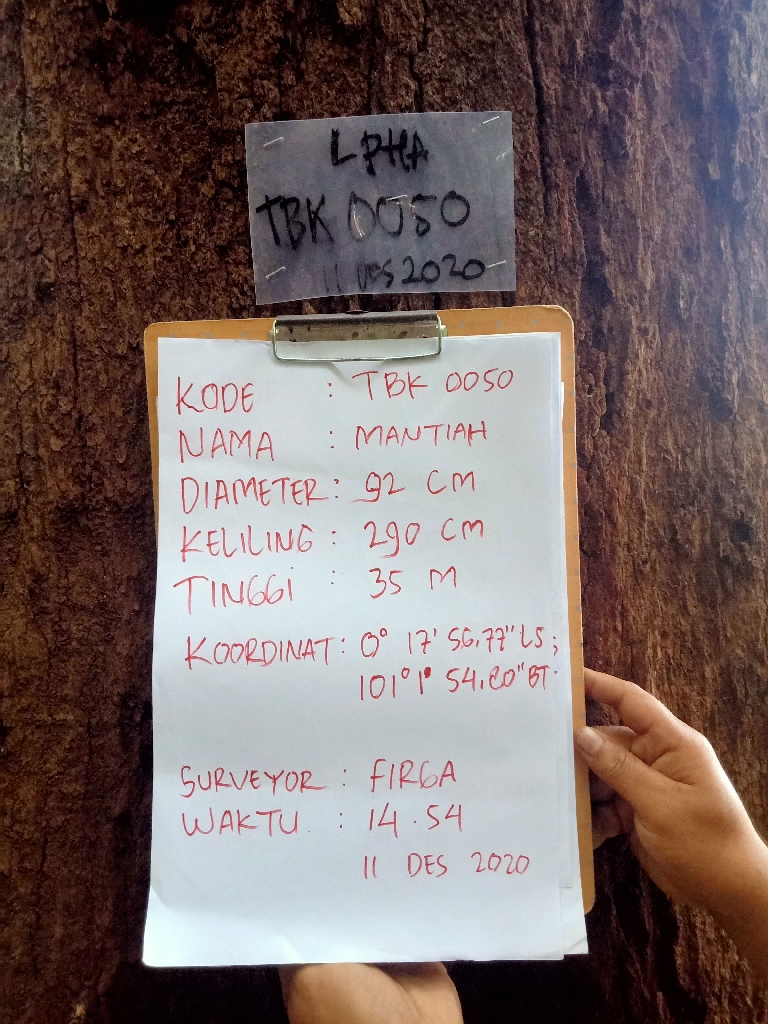 LPHA
TBK 0050
11 DES 2020
KODE : TBK 0050
NAMA : MANTIAH
DIAMETER : 92 CM
KELILING : 290 CM
TINGGI : 35 M
KOORDINAT : 0° 17' 56,77" LS ;
101° 1' 54,80" BT.
SURVEYOR : FIRGA
WAKTU : 14.54
11 DES 2020